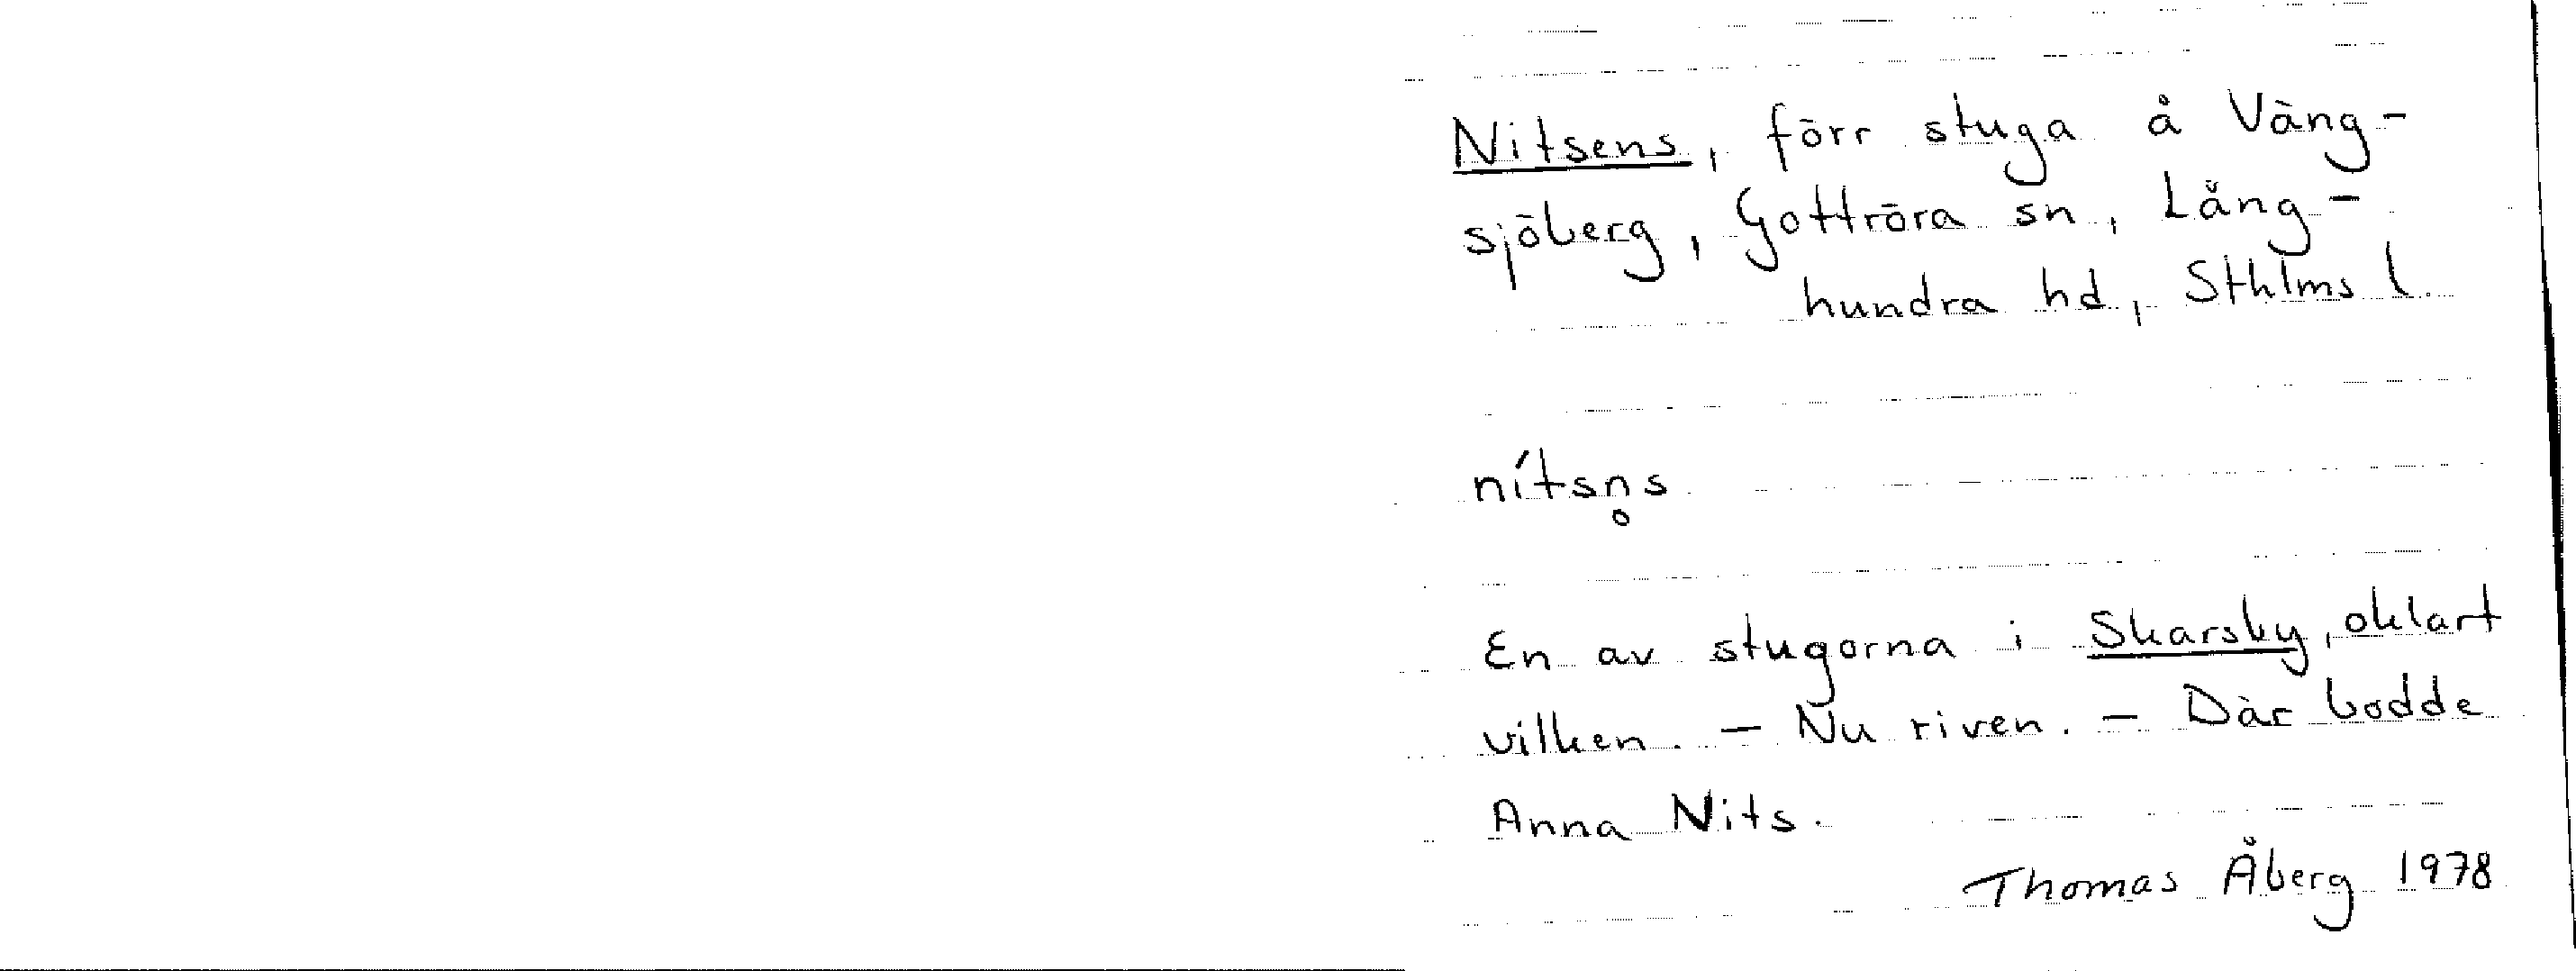 Nitsens, förr stuga å Väng-
sjöberg, Gottröra sn, Lång-
hundra hd, Sthlms l
nítsn̥s
En av stugorna i Skarsby, oklart
vilken. – Nu riven. – Där bodde
Anna Nits.
Thomas Åberg 1978